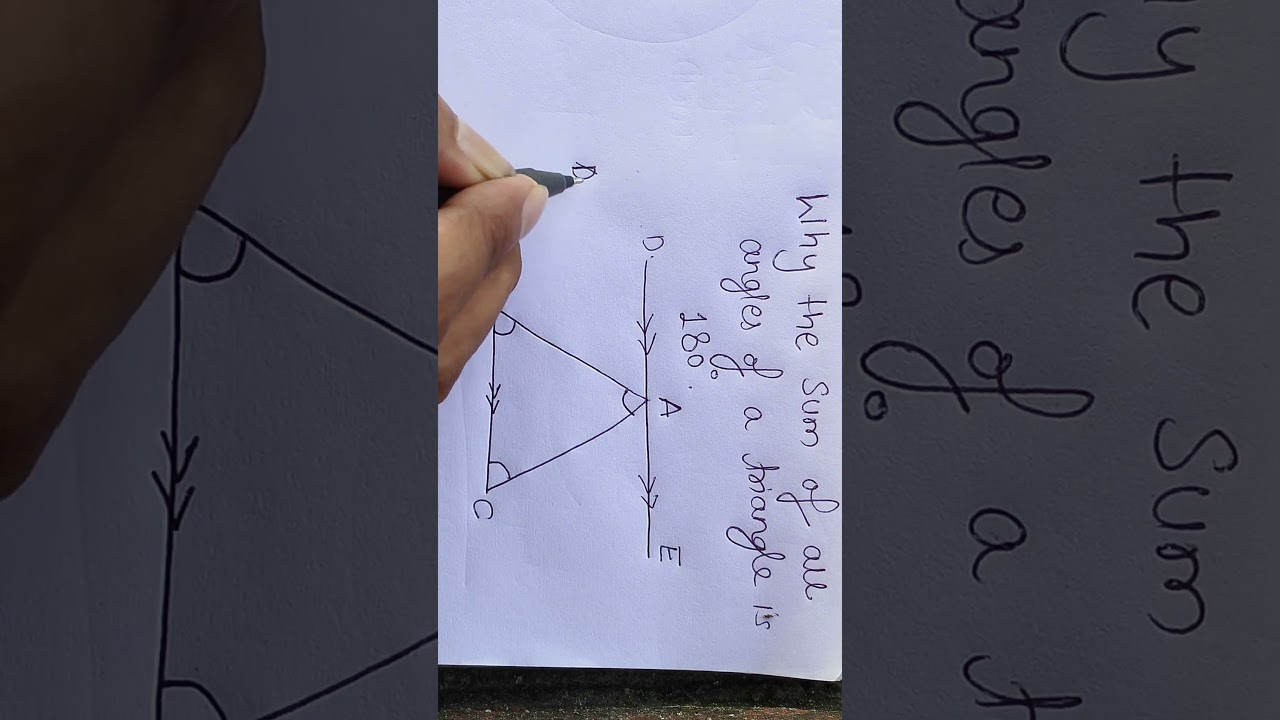 Why the Sum of all
angles of a triangle is
180°.
D A E
C